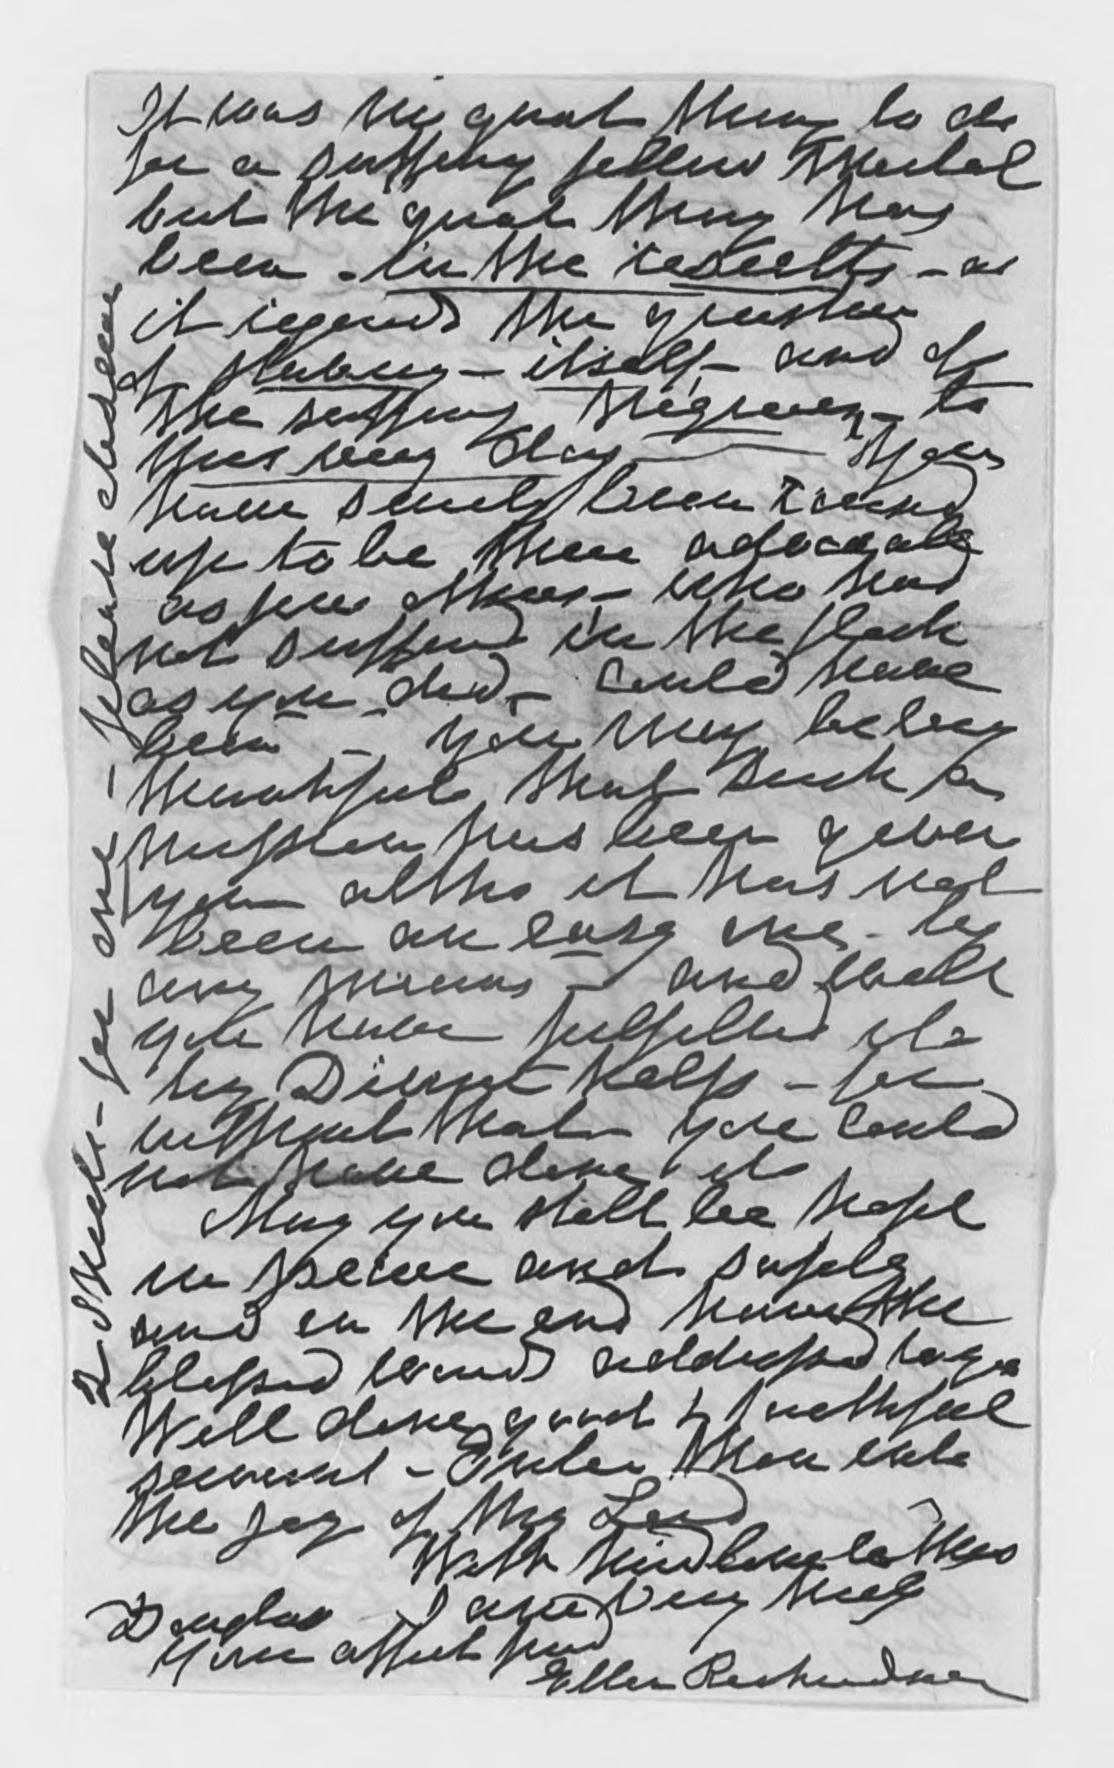 It was no great thing to do
for a suffering fellow mortal
but the great thing has
been - in the results - as
it regards the question
of slavery - itself - and of
the suffering Negroes - to
this very day — You
have surely been raised
up to be their advocate
as few others - who had
not suffered in the flesh
as you did - could have
been - You may be very
thankful that such a
mission has been given
you altho it has not
been an easy one - by
any means - and well
you have fulfilled it
by Divine help - for
without that you could
not have done it
May you still be kept
in peace and safety
and in the end have the
blessed words addressed to you
Well done good & faithful
servant - Enter thou into
the joy of thy Lord
With kind love to Mrs
Douglass I am very truly
Your affect friend
Ellen Richardson
- for one - please